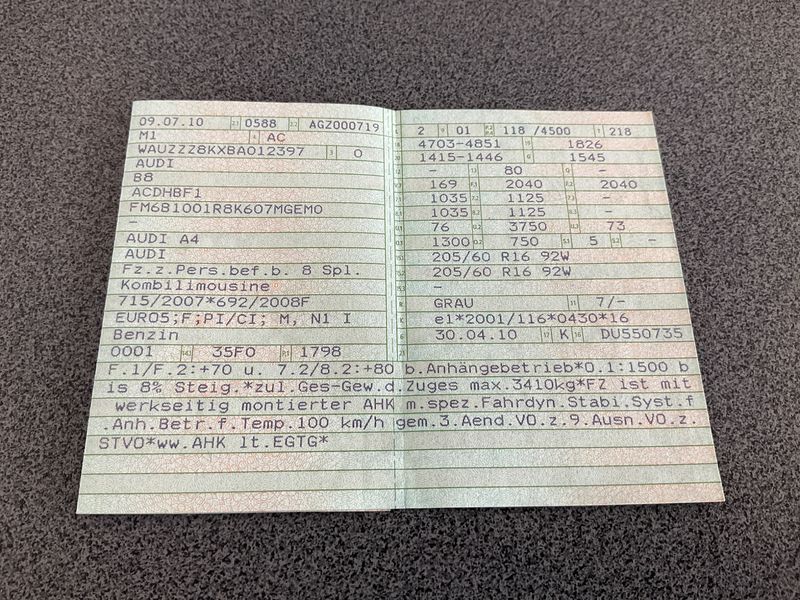 09.07.10 2.1 0588 2.2 AGZ000719
M1 4 AC
WAUZZZ8KXBA012397 3 0
AUDI
B8
ACDHBF1
FM6B1001R8K607MGEM0
-
AUDI A4
AUDI
Fz.z.Pers.bef.b. 8 Spl.
Kombilimousine
715/2007*692/2008F
EURO5;F;PI/CI; M, N1 I
Benzin
0001 14.1 35F0 P.1 1798
L 2 9 01 P.2 P.4 118 /4500 T 218
18 4703-4851 19 1826
20 1415-1446 G 1545
- 13 80 Q -
169 F.1 2040 F.2 2040
7.1 1035 7.2 1125 7.3 -
8.1 1035 8.2 1125 8.3 -
U.1 76 U.2 3750 U.3 73
O.1 1300 O.2 750 S.1 5 S.2 -
15.1 205/60 R16 92W
15.2 205/60 R16 92W
15.3 -
R GRAU 11 7/-
K e1*2001/116*0430*16
6 30.04.10 17 K 16 DU550735
21
F.1/F.2:+70 u. 7.2/8.2:+80 b.Anhängebetrieb*O.1:1500 b
is 8% Steig.*zul.Ges-Gew.d.Zuges max.3410kg*FZ ist mit
werkseitig montierter AHK m.spez.Fahrdyn.Stabi.Syst.f
.Anh.Betr.f.Temp.100 km/h gem.3.Aend.VO.z.9.Ausn.VO.z.
STVO*ww.AHK lt.EGTG*